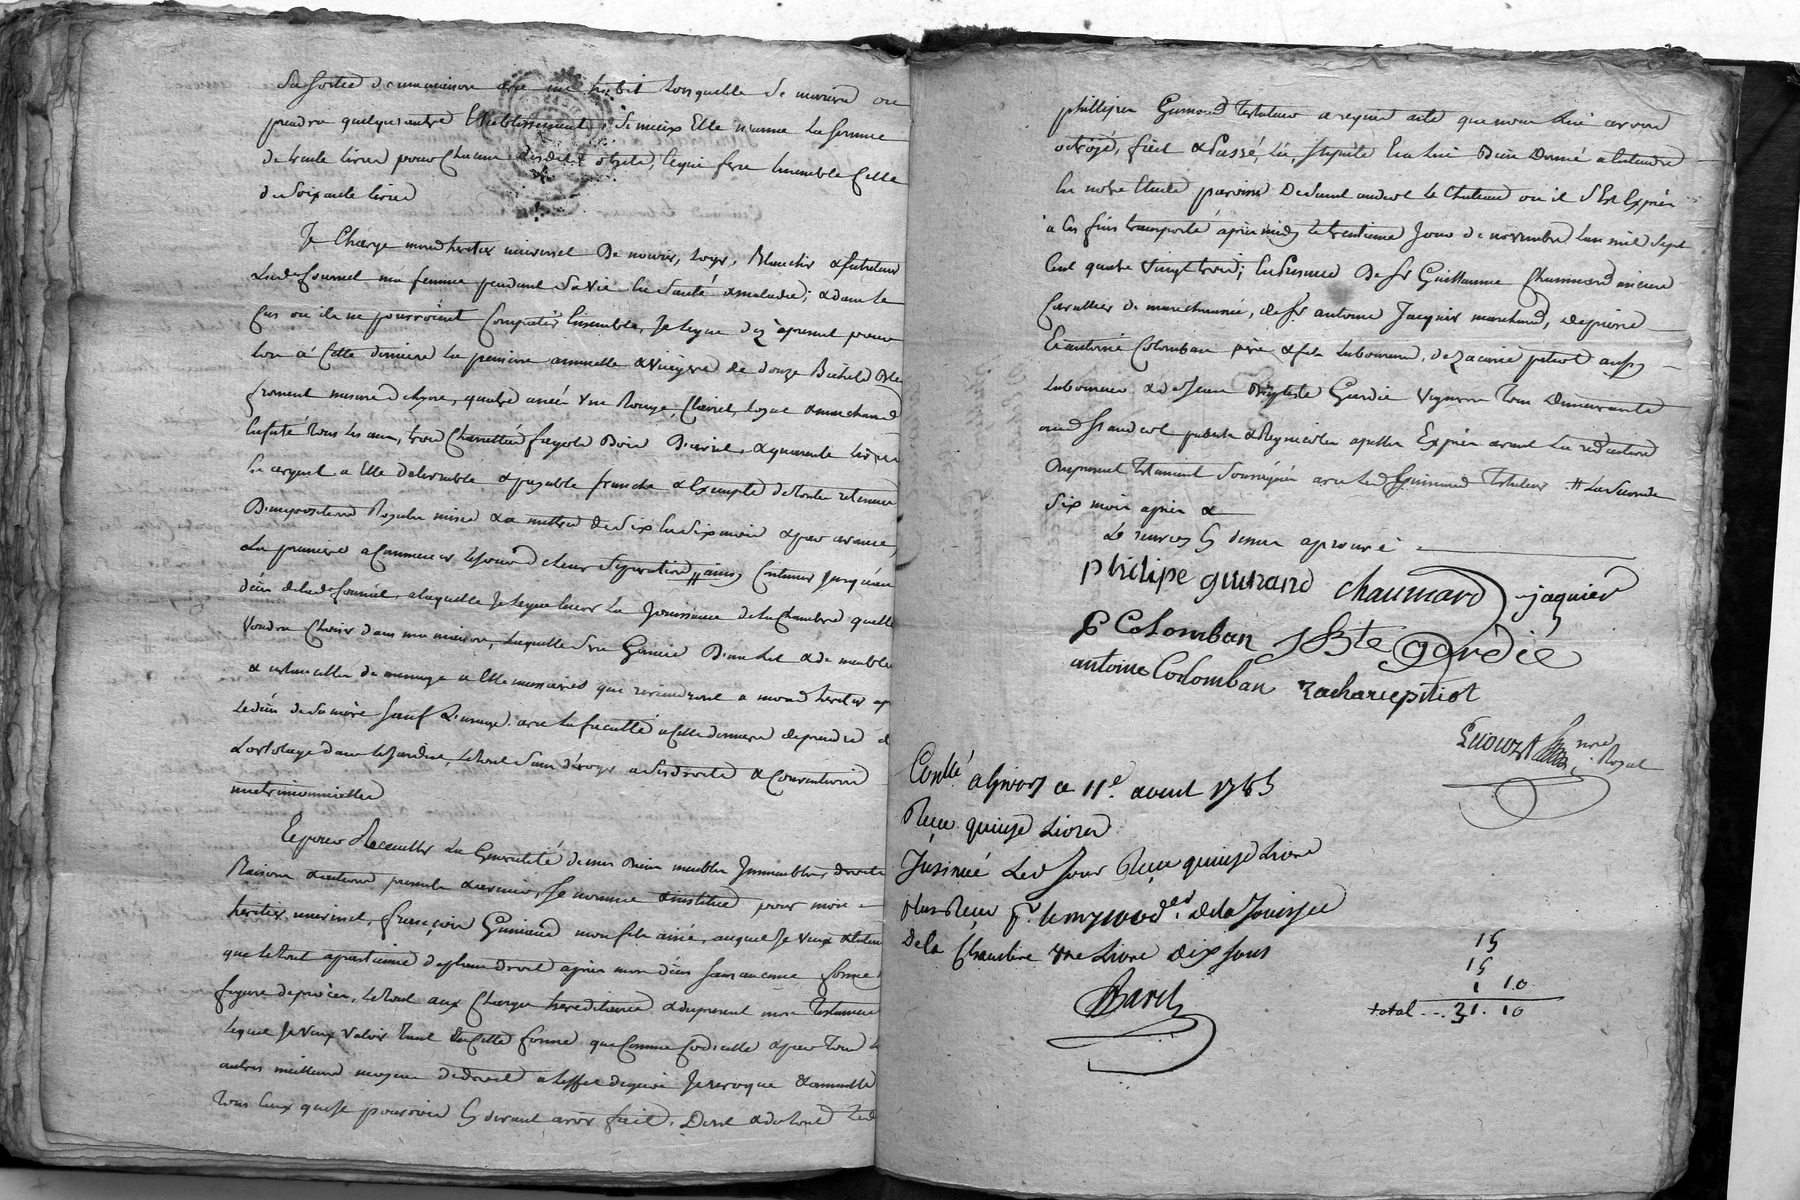 Sa sortie de ma maison avec un habit lorsquelle se mariera ou
prendra quelque autre Etablissement, si mieux Elle n'aime la somme
de trente livres pour chacun desdits objets, ce qui fera Ensemble Celle
de soixante livres
Je Charge mond heritier universel De nourir, loger, Blanchir & Entretenir
lad fournel ma femme pendant sa vie En santé & maladie; & dans le
Cas ou ils ne pourroient Compatir Ensemble, Je legue dez à present pour
lors à Cette derniere la pension annuelle & viagere de douze Bichets Ble
froment mesure de , quatre anées vin Rouge, Clairet, loyal & marchand
Enfuté tous les ans, trois Charretées fagots Bois & quarante livres
En argent a Elle delivrable & payable franche & Exempte de toute retenue
D'imposition Royale mise & a mettre de six En six mois & par avance,
La premiere a Commencer lejour de leur Separation # ainsy Continuer jusqu'au
déces de lad fournel, a laquelle Je legue Encor La Jouissance de la Chambre quelle
voudra Choisir dans ma maison, laquelle sera Garnie D'un lit & de meubles
& ustancilles de menage a Elle necessaires que reviendront a mond heritier ap
le déces de sa mère sauf L'usage. avec la faculté a Cette derniere de prendre d
L'ortolage dans le Jardin, le tout sans déroger a ses droits & Conventions
matrimonialles
Et pour Recueillir La Generalité de mes Biens meubles Immeubles, droits
Raisons & actions presents & avenir, Je nomme & institue pour mon
heritier universel, françois Guinand mon fils ainé, auquel Je veux & Entens
que le tout apartienne de plein droit après mon déces sans aucune forme
figure de procès, le tout aux Charges hereditaires & du present mon Testament
lequel Je veux valoir tant En Cette forme que Comme Codicille & par tous
autres meilleurs moyens de droit a l'effet de quoi Je revoque & annulle
Tous Ceux que Je pourrois Cy devant avoir fait. Dont & du tout led
phillippe Guinand testateur a requis acte que nous lui avons
octroyé, fait & Passé, Lû, & Repeté En lui Bien Donné a Entendre
En notre Etude paroisse De Saint andeol le Chateau ou il s'Est Exprès
à Ces fins transporté après midy le trentieme Jour de novembre L'an mil Sept
Cent quatre vingt trois; En Presence De Sr Guillaume Chaumard ancien
Cavallier de marechaussée, de Sr antoine Jaquier marchand, de pierre
Et antoine Colomban père & fils Laboureurs, de Zacarie pitiot aussy
Laboureur & de Jean Baptiste Gardié Vigneron Tous Demeurants
aud St andeol priés & Requis
du present Testament soussignés avec led Guinand Testateur # La seconde
six mois après &
Le renvoy Cy dessus aprouvé
philipe guinand chaumard jaquier
P Colomban JBte gardié
antoine Colomban zacharie pitiot
nre Royal
Conllé a Givors ce 11e. avril 1785
Reçu quinze Livres
Insinué Led Jour Reçu quinze Livres
plus Reçu pr. le my 100e den. de la Jouissce
De la Chambre Une Livre Dix sous
15
15
1 10
total ... 31. 10